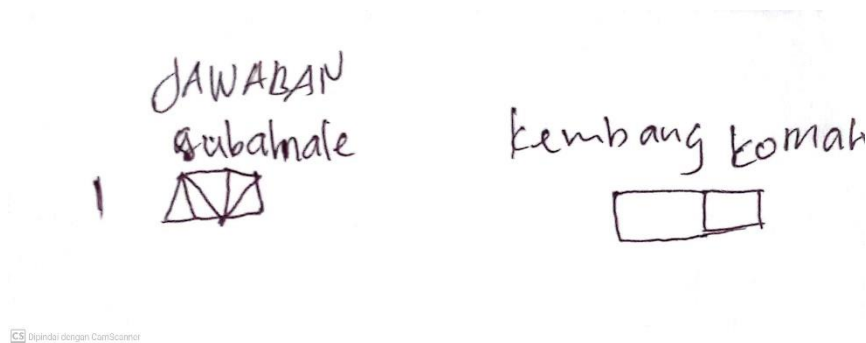 JAWABAN
subahnale
kembang komah
1
CS Dipindai dengan CamScanner